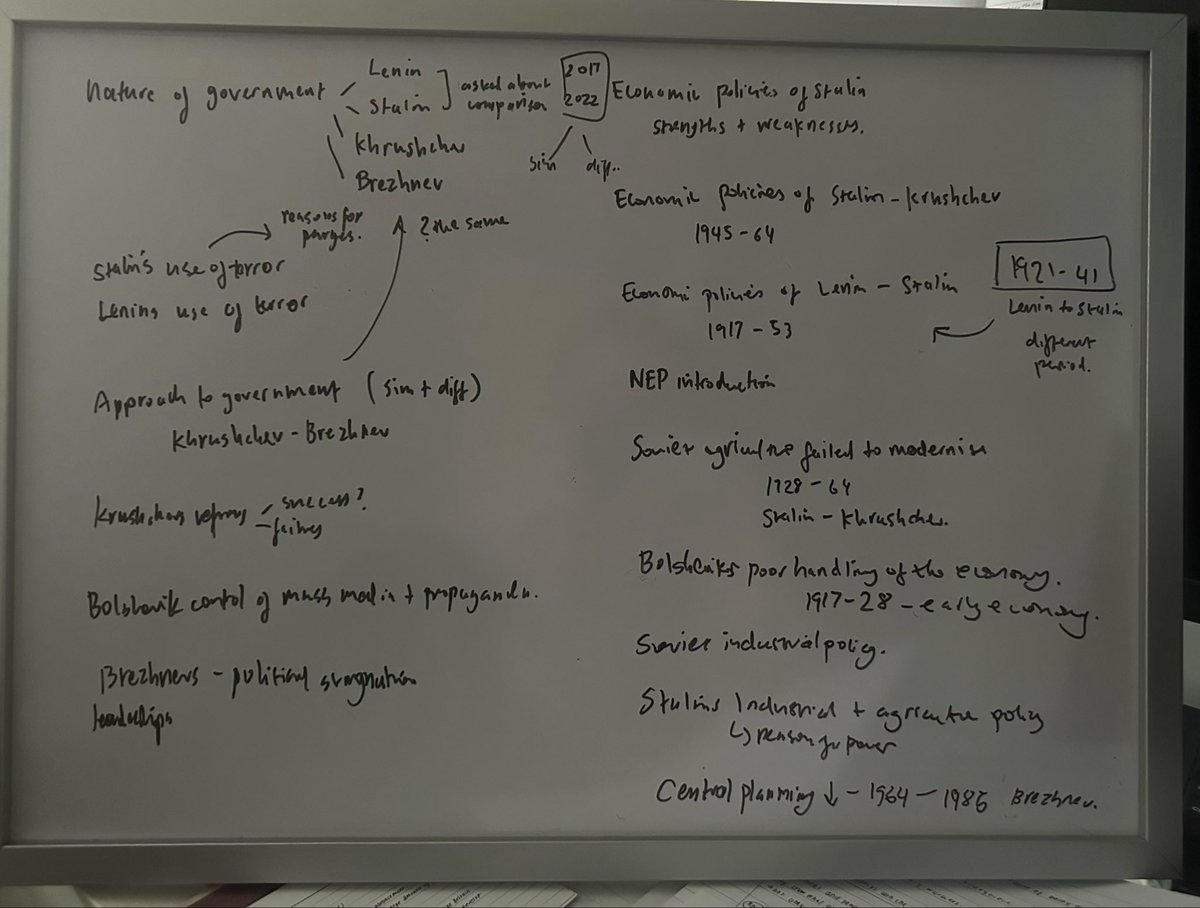 Nature of government
Lenin
Stalin
Khrushchev
Brezhnev
asked about
comparison
2017
2022
sim
diff..
reasons for
purges.
? the same
Stalin's use of terror
Lenins use of terror
Approach to government (sim + diff)
Khrushchev - Brezhnev
success?
Bolshevik control of mass media + propaganda.
Brezhnevs - political stagnation
Economic policies of Stalin
strengths + weaknesses.
Economic policies of Stalin - Krushchev
1945 - 64
Economic policies of Lenin - Stalin
1917 - 53
1921 - 41
Lenin to Stalin
different
period.
NEP introduction
Soviet agriculture failed to modernise
1928 - 64
Stalin - Khrushchev.
Bolsheviks poor handling of the economy.
1917-28 - early economy.
Soviet industrial policy.
Stalins Industrial + agriculture policy
↳ reason for power
Central planning ↓ - 1964 - 1985 Brezhnev.